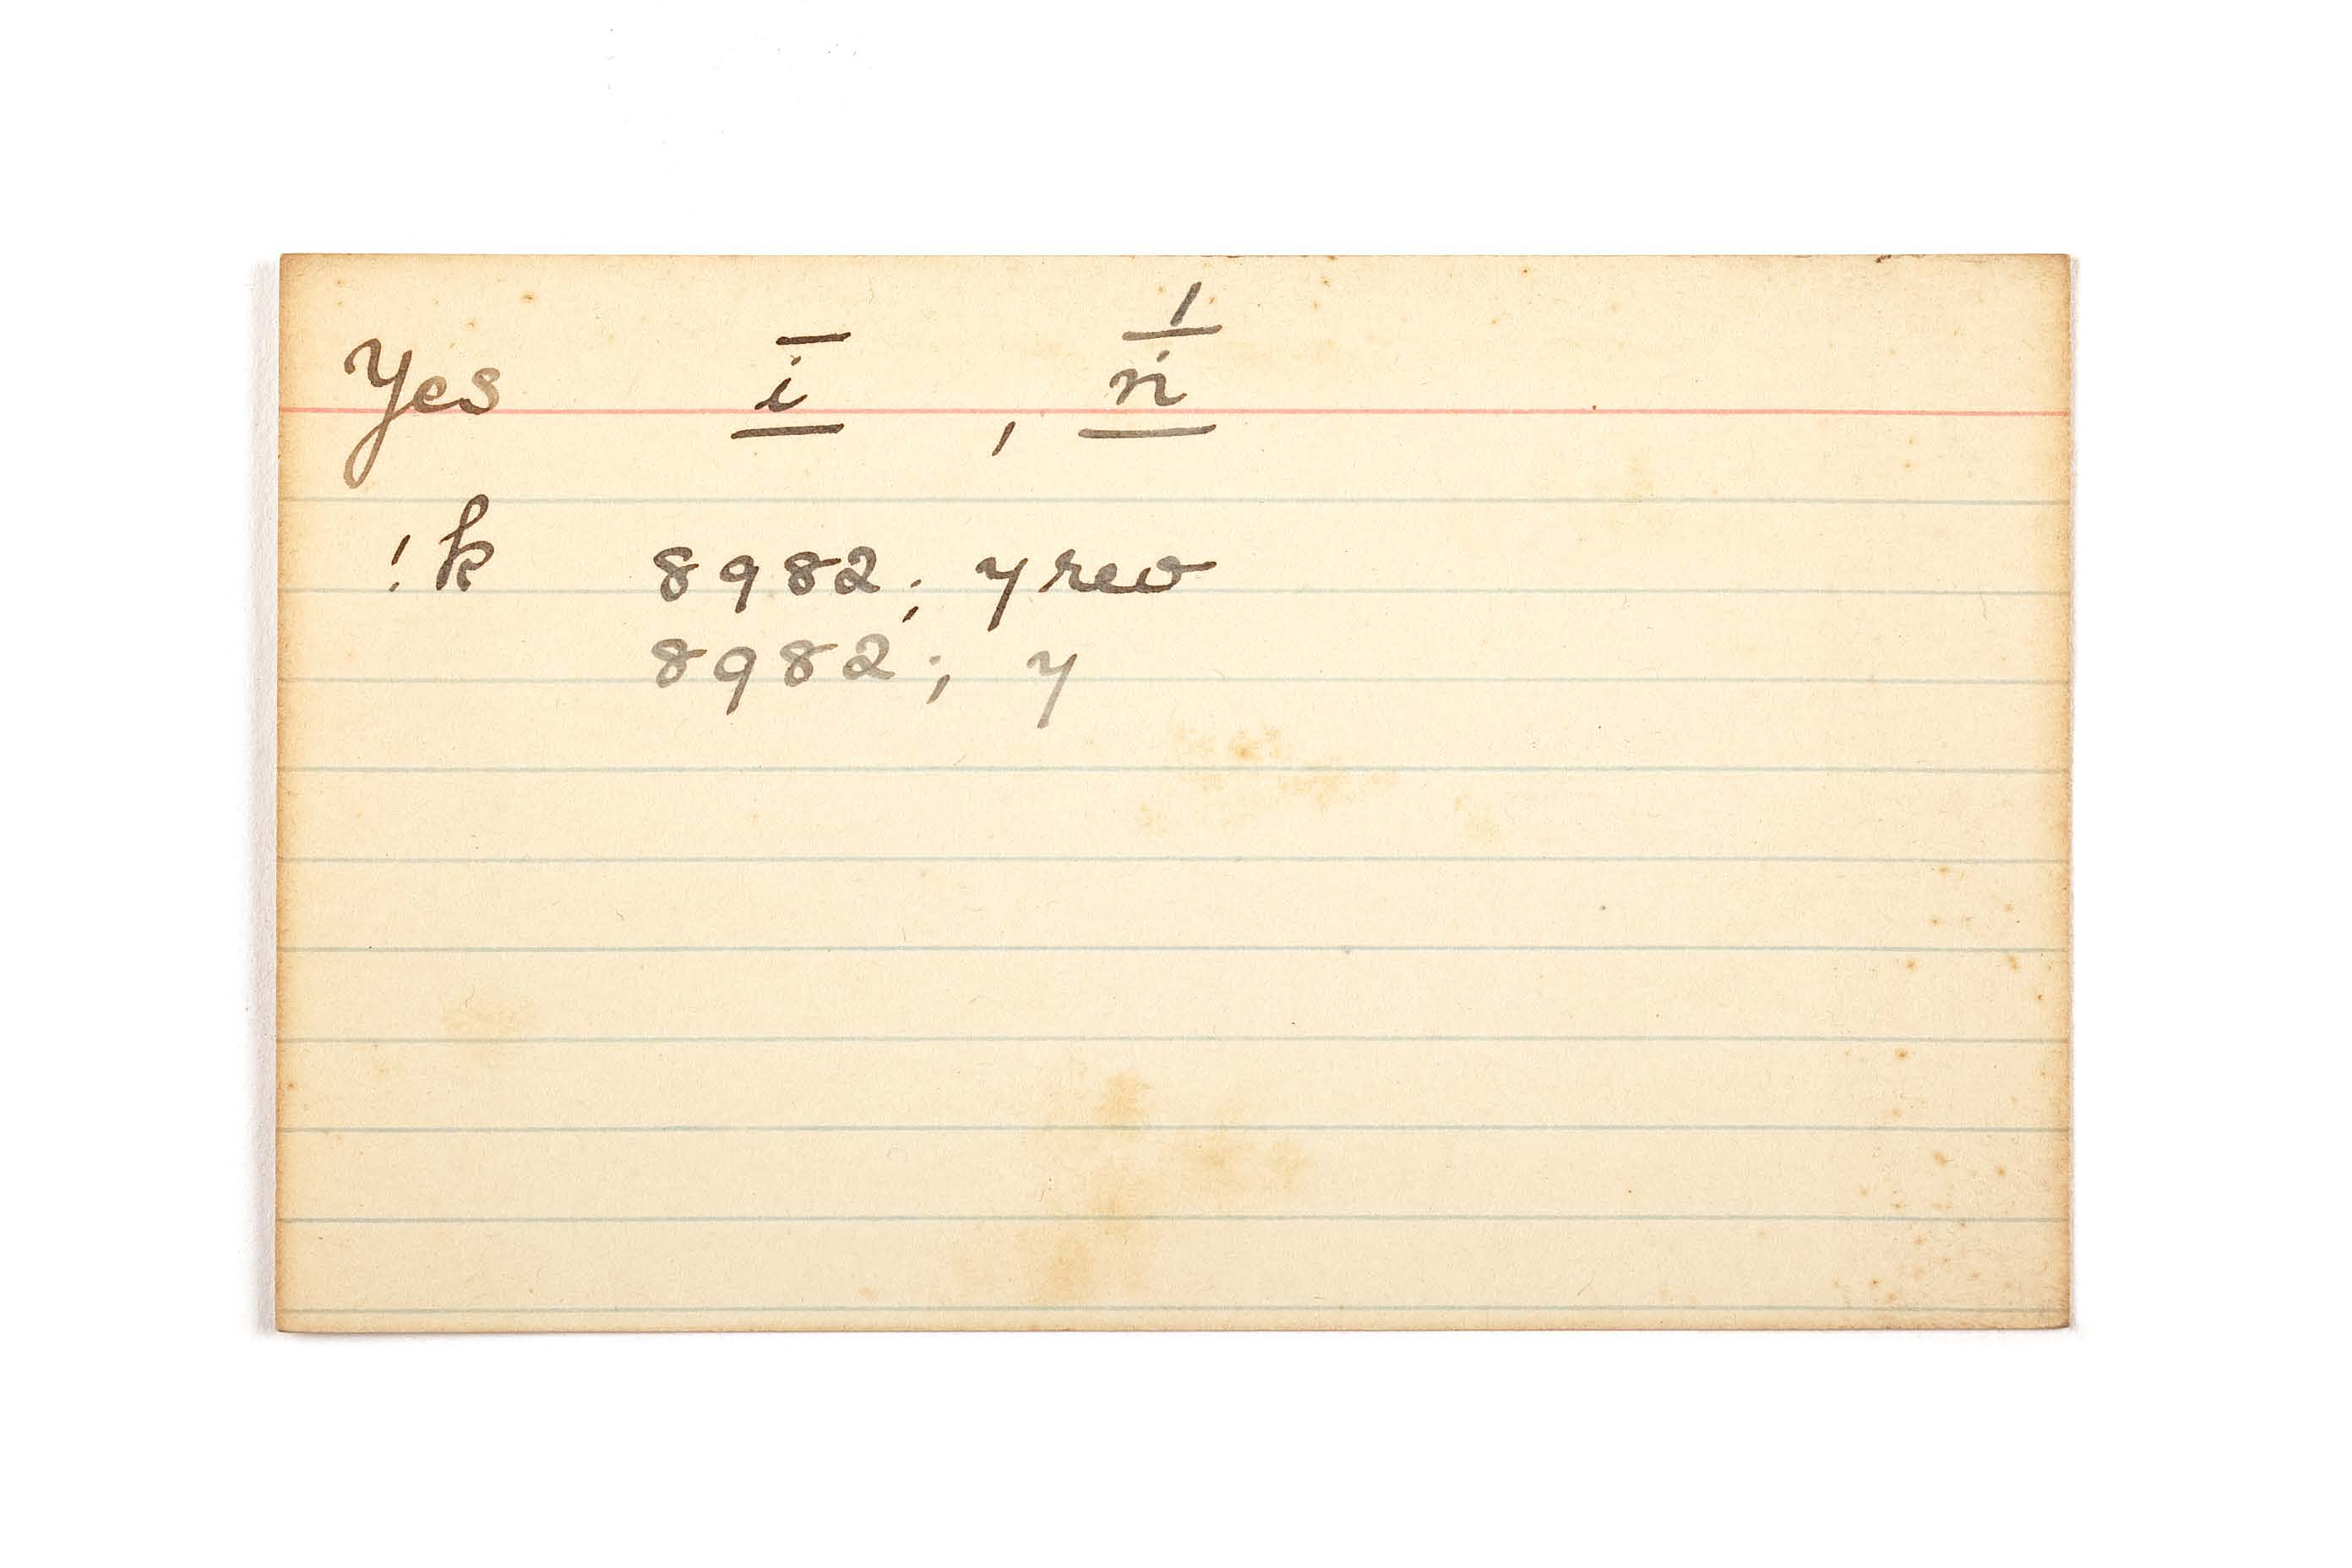 Yes ī̲ , n̲í̲̄
!k 8982; y rev
8982; y